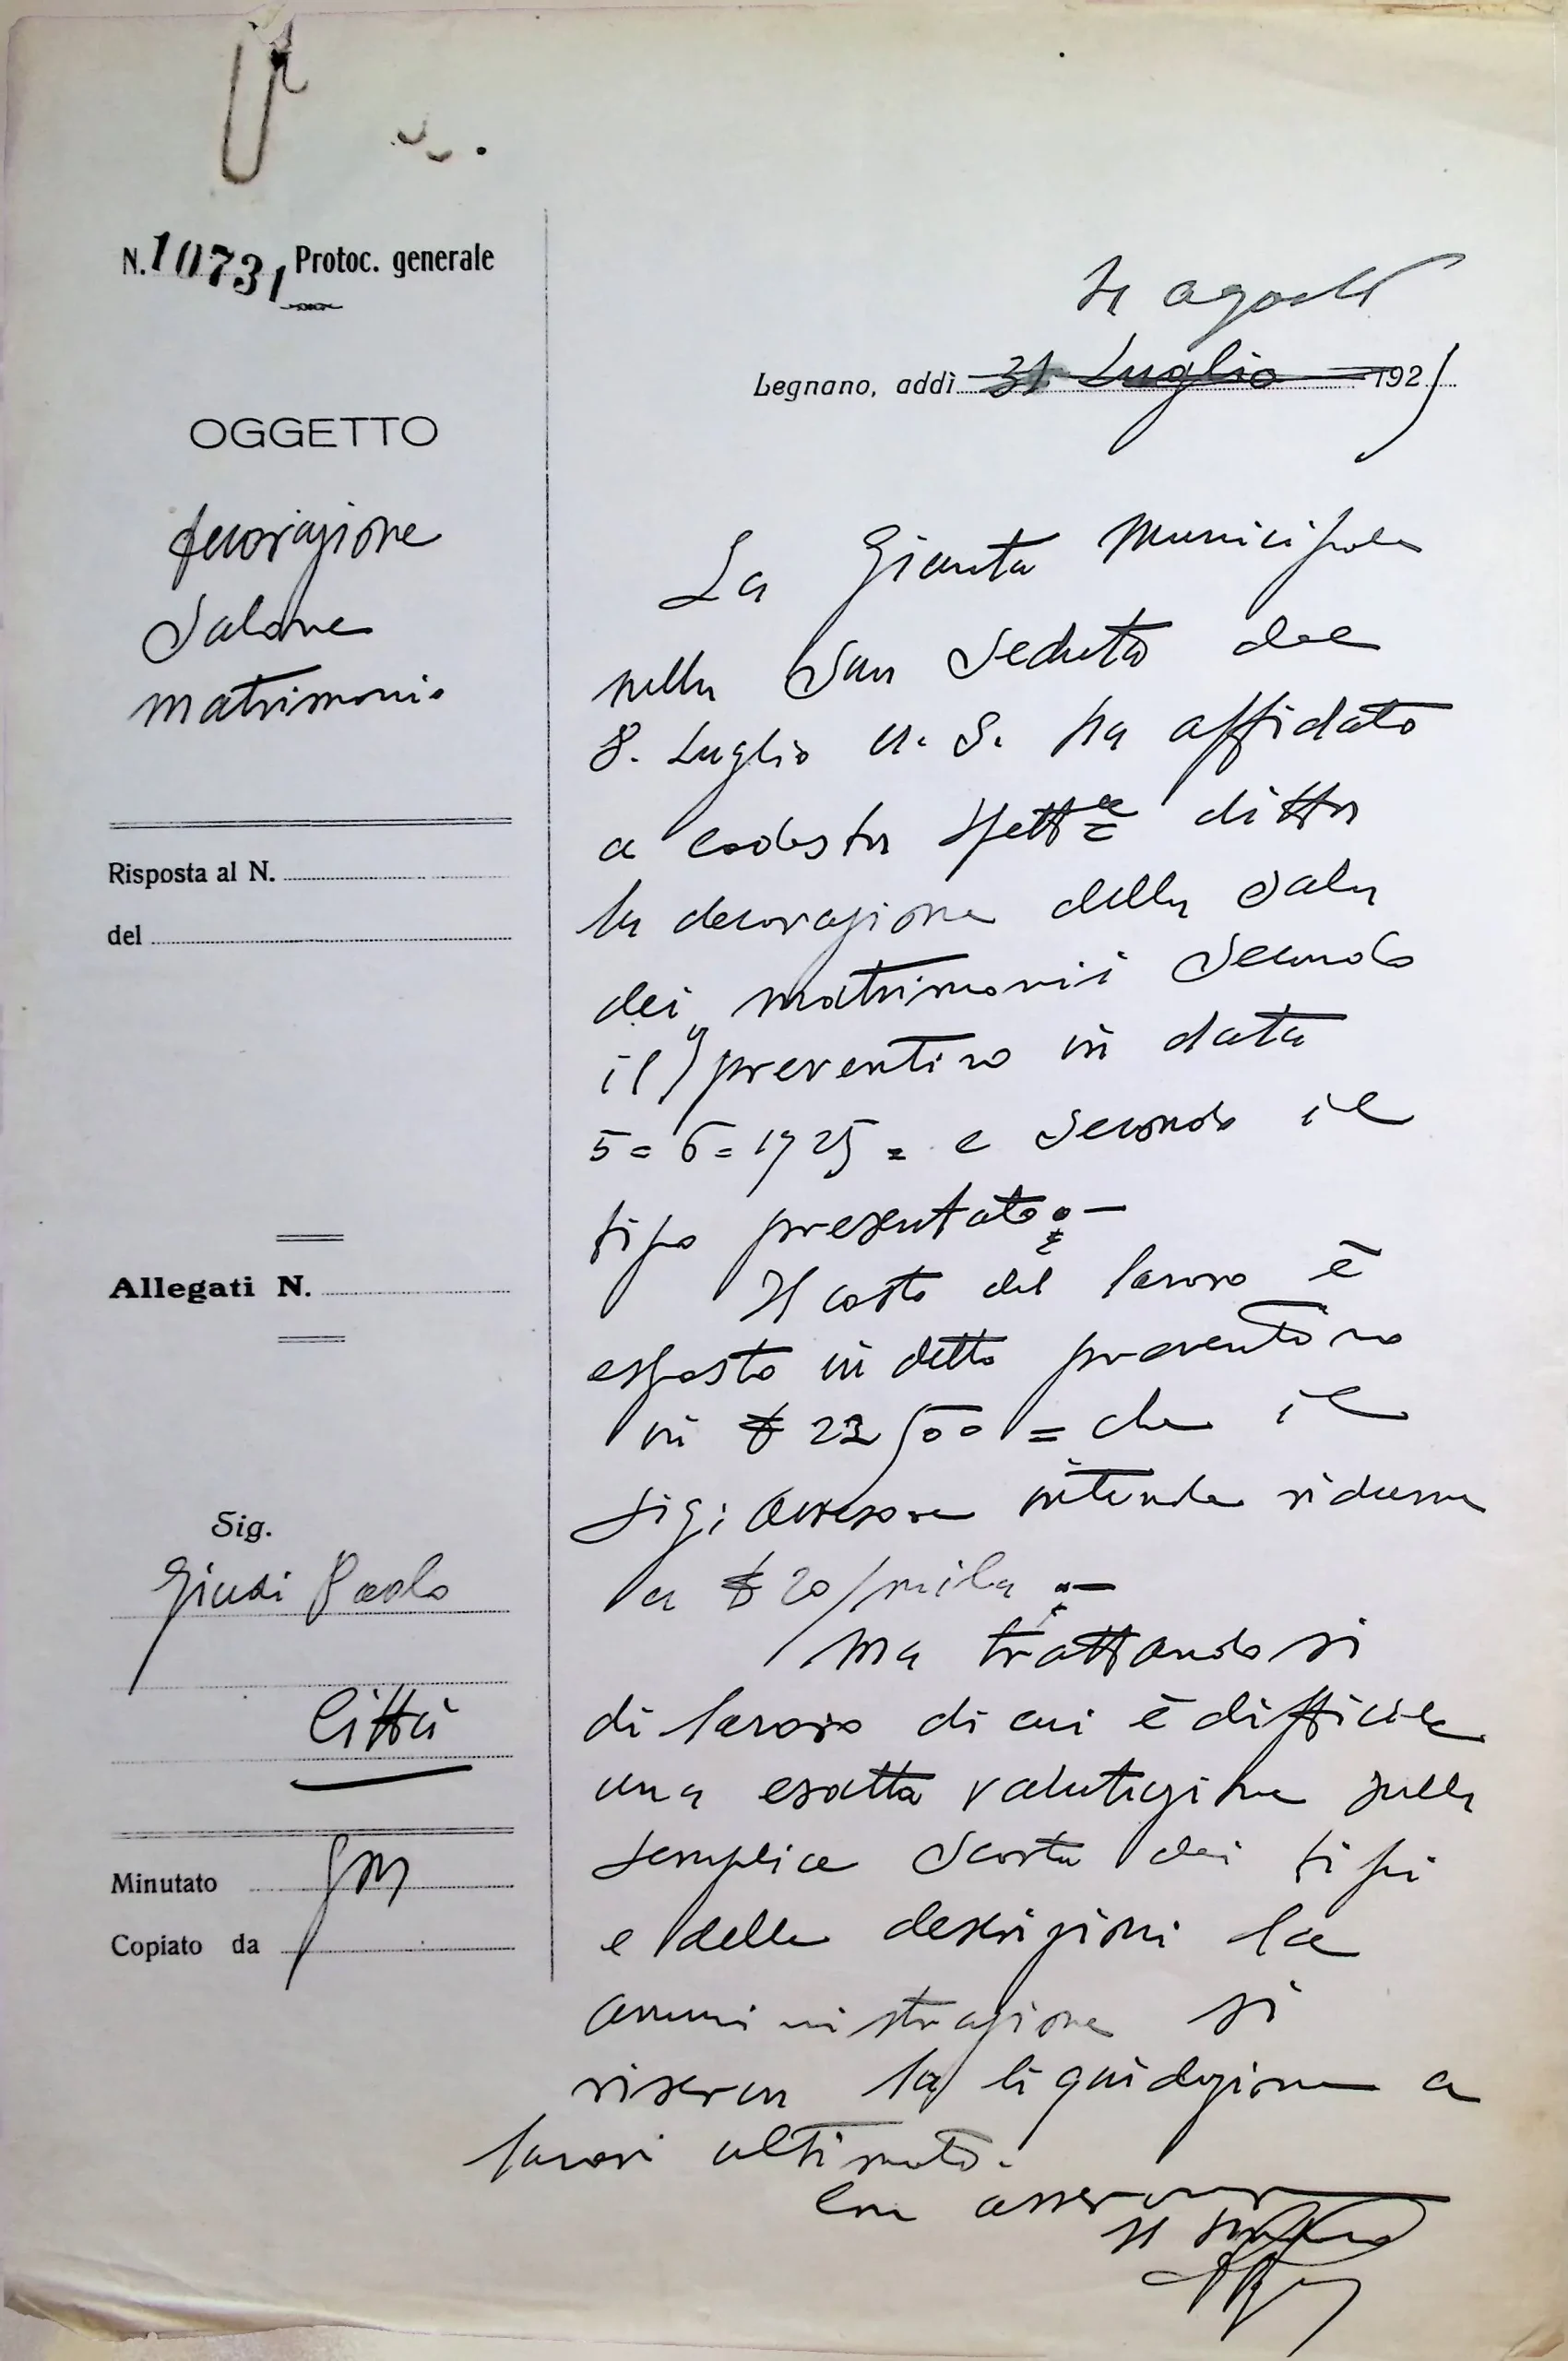 N. 10731 Protoc. generale
agosto
Legnano, addì 31 Luglio 1925
OGGETTO
decorazione
Salone
matrimonio
Risposta al N.
del
Allegati N.
Sig.
Giudi Paolo
Città
Minutato
Copiato da
La Giunta Municipale
nella Sua Seduta del
8. Luglio u. s. ha affidato
a codesta Spett.a ditta
la decorazione della Sala
dei matrimonii Secondo
il preventivo in data
5=6=1925= e Secondo il
tipo presentato.-
Il costo del lavoro è
esposto in detto preventivo
in £ 22500= che il
Sig: Assessore intende ridurre
a £ 20/mila.-
Ma trattandosi
di lavoro di cui è difficile
una esatta valutazione sulla
semplice Scorta dei tipi
e delle descrizioni la
amministrazione si
riserva la liquidazione a
lavori ultimato.
Con osservanza
Il Sindaco